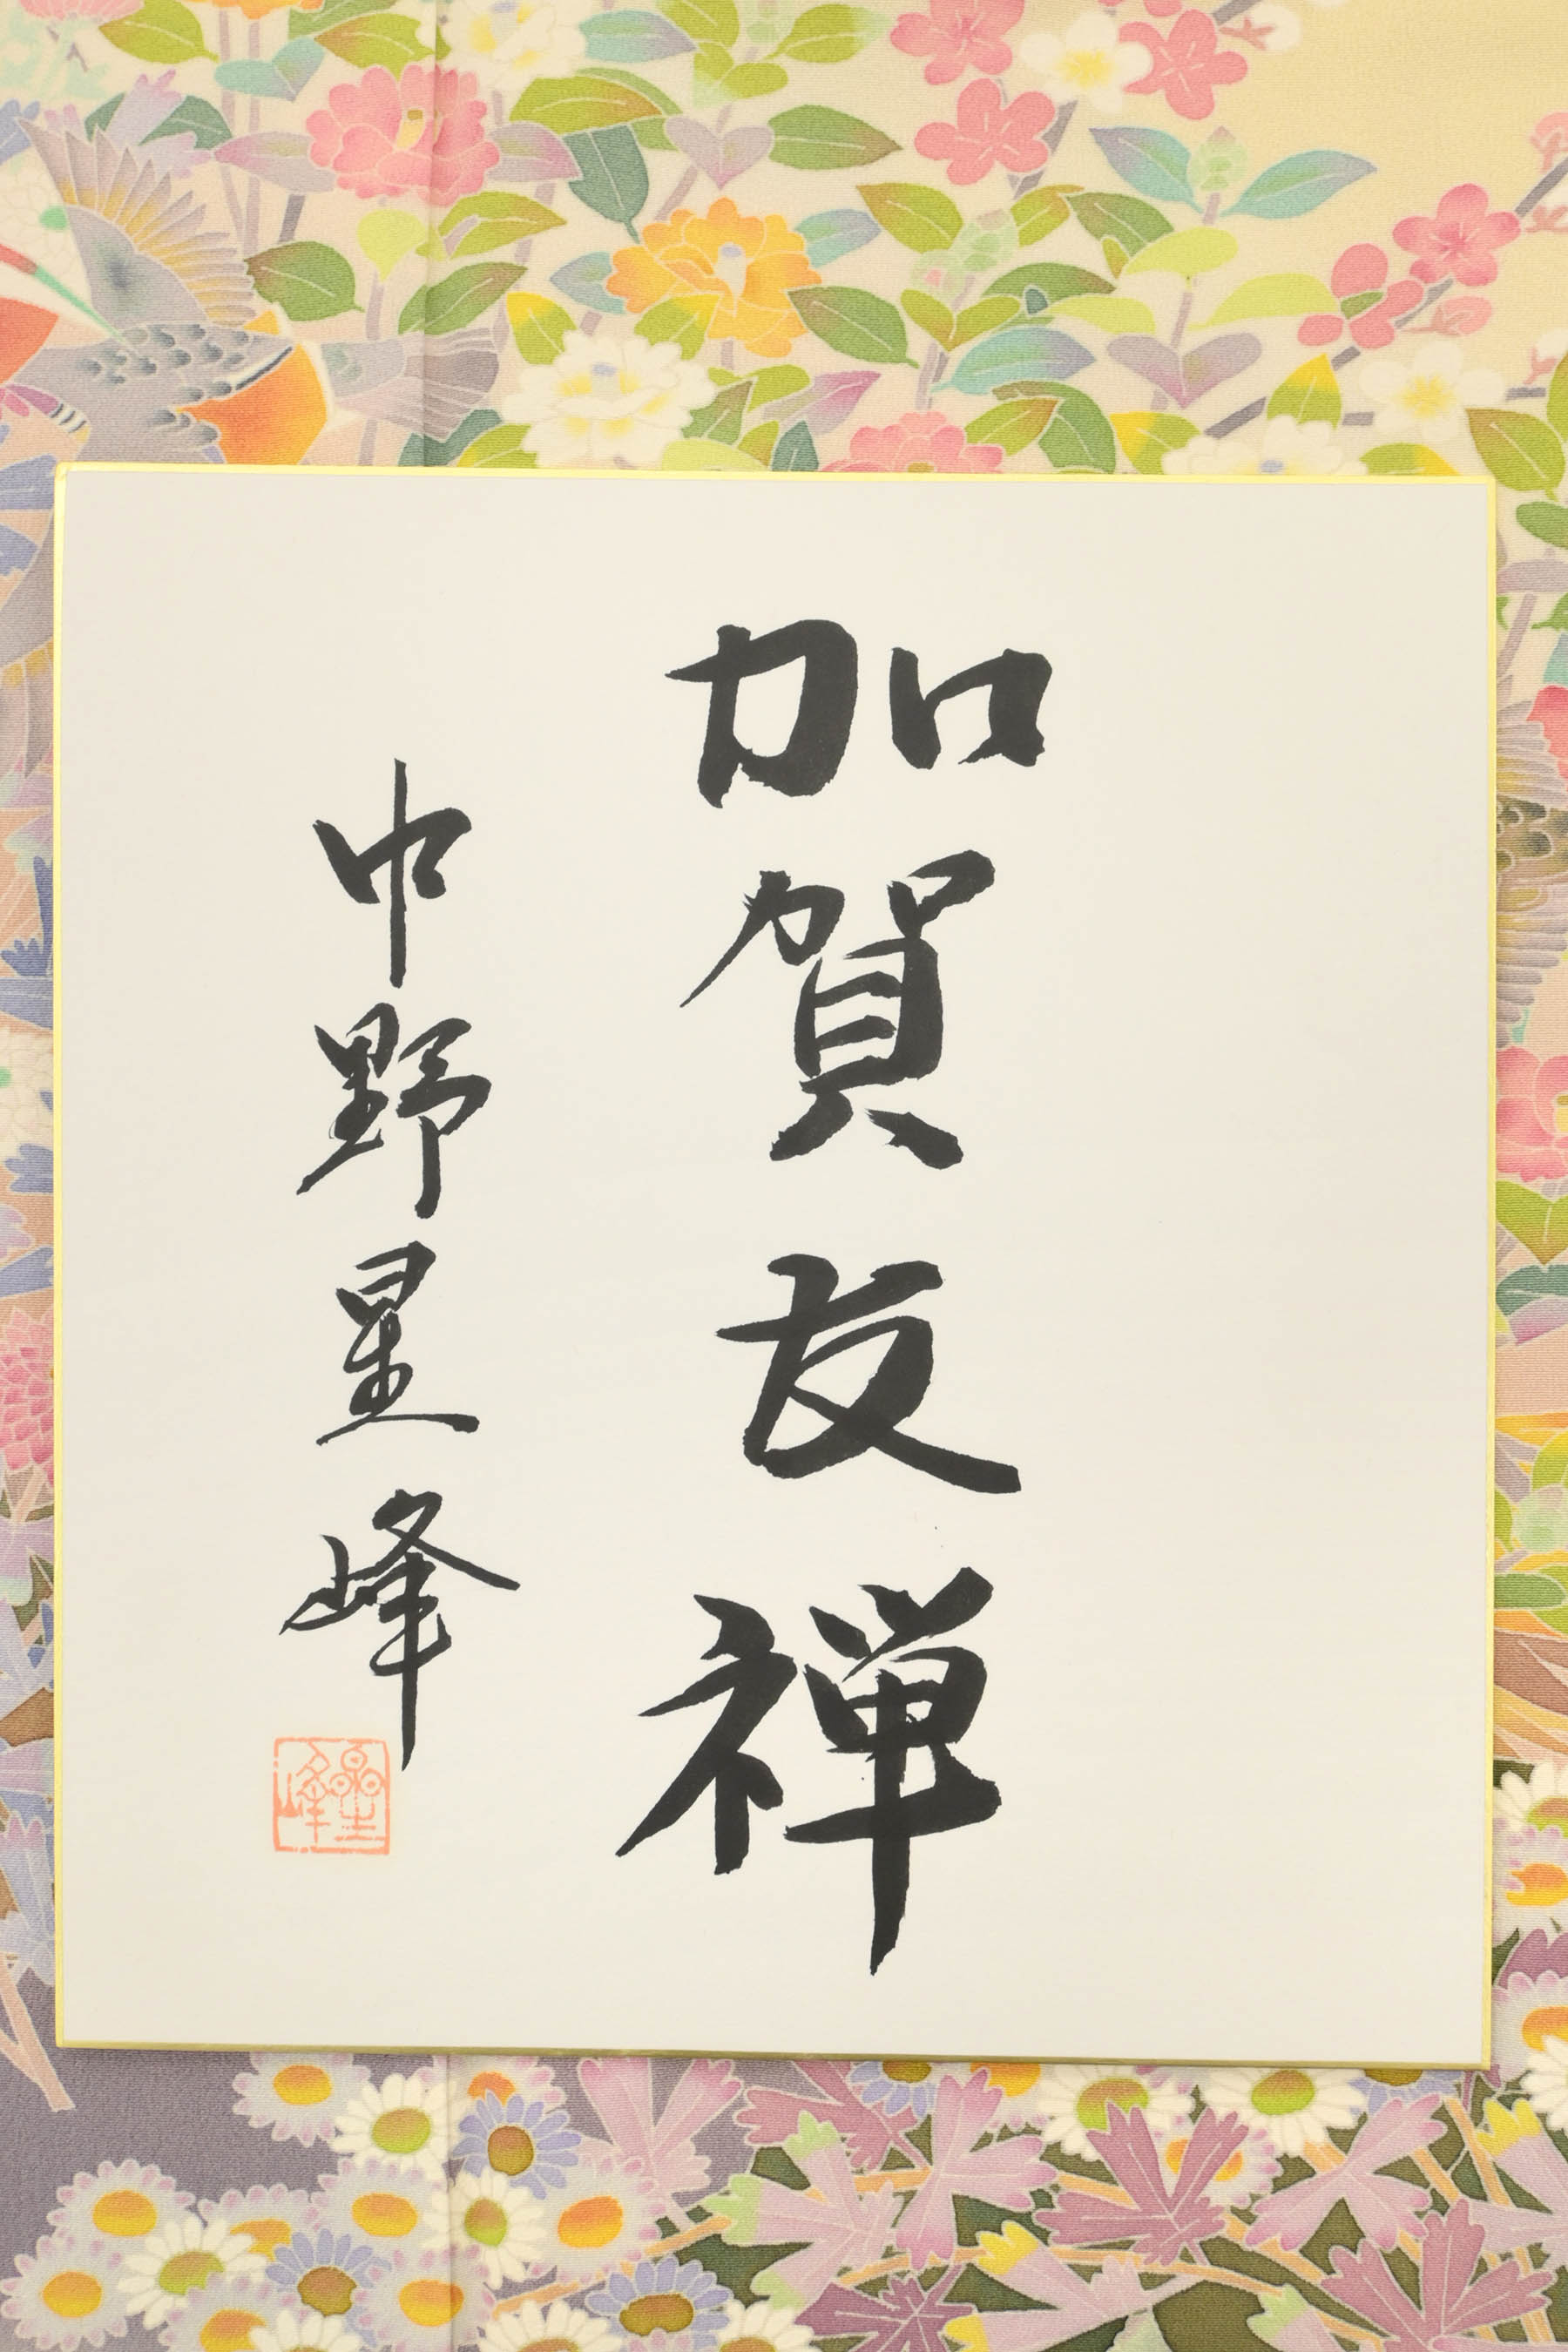 加賀友禅
中野星峰
星峰